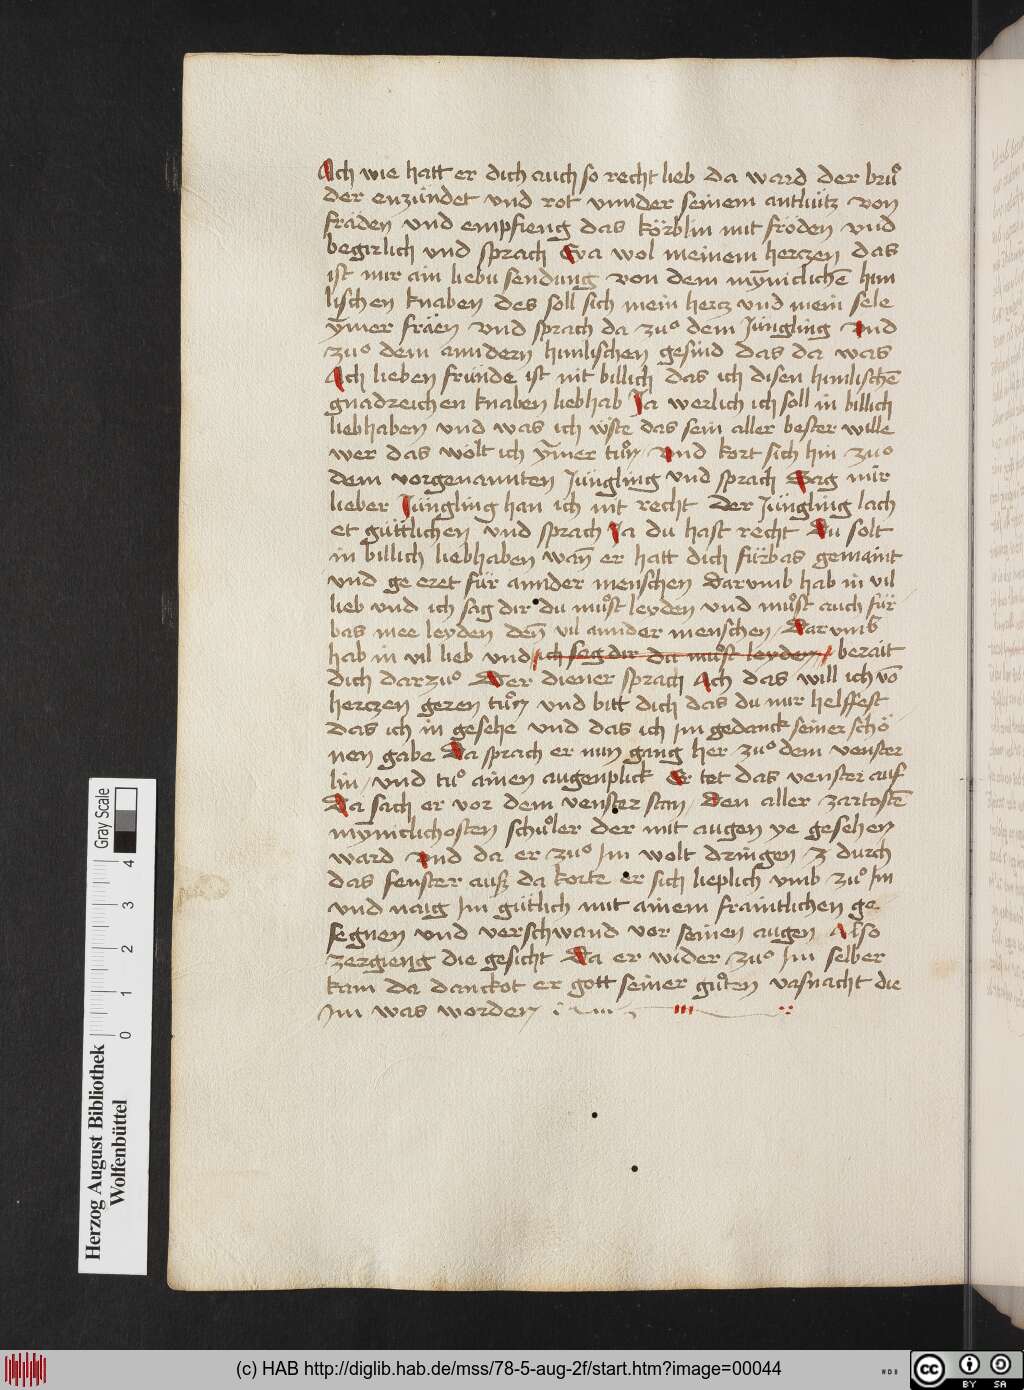 Ach wie hatt er dich auch so recht lieb da ward der brůͦ
der enzúndet vnd rot vnnder seinem antlútz von
fráden vnd empfieng das kórblin mit fróden vnd
begirlich vnd sprach Eva wol meinem herczen das
ist mir ain liebú sendung von dem mÿniclichē him
lischen knaben des soll sich mein hercz vnd mein sele
ÿmer fráen vnd sprach da zuͦ dem Júngling vnd
zuͦ dem anndern himlischen gesind das da was
Ach lieben frúnde ist nit billich das ich disen himlischē
gnadreichen knaben liebhab Ja werlich ich soll in billich
liebhaben vnd was ich wiste das sein aller bester wille
wer das wólt ich ÿmer tuͦn vnd kort sich hin zuͦ
dem vorgenannten Júngling vnd sprach Sag mir
lieber Júngling han ich nit recht der Júngling lach
et gúttlichen vnd sprach Ja du hast recht Du solt
in billich liebhaben wañ er hatt dich fúrbas gemaint
vnd ge eret fúr annder menschen darumb hab in vil
lieb vnd ich sag dir du muͦst leyden vnd muͦst auch fúr
bas mee leyden deñ vil annder menschen / Darumb
hab in vil lieb vnd ich sag dir du muͦst leyden berait
dich darzuͦ Der diener sprach Ach das will ich võ
herczen geren tuͦn vnd bitt dich das du mir helffest
das ich in gesehe vnd das ich jm gedanck seiner schó
nen gabe Da sprach er nun gang her zuͦ dem venster
lin / vnd tuͦ ainen augenplick Er tet das venster auf
Da sach er vor dem venster stan / Den aller zartostē
mÿniclichosten schuͦler der mit augen ye gesehen
ward vnd da er zuͦ jm wolt dringen z durch
das fenster auß da korte er sich lieplich vmb zuͦ jm
vnd naig jm gútlich mit ainem fraintlichen ge
segnen vnd verschwand vor seinen augen Also
zergieng die gesicht Da er wider zuͦ jm selber
kam da danckot er gott seiner guͦten vasnacht die
jm was worden
Herzog August Bibliothek
Wolfenbüttel
0 1 2 3 4
Gray Scale
(c) HAB http://diglib.hab.de/mss/78-5-aug-2f/start.htm?image=00044
WDB
cc BY SA